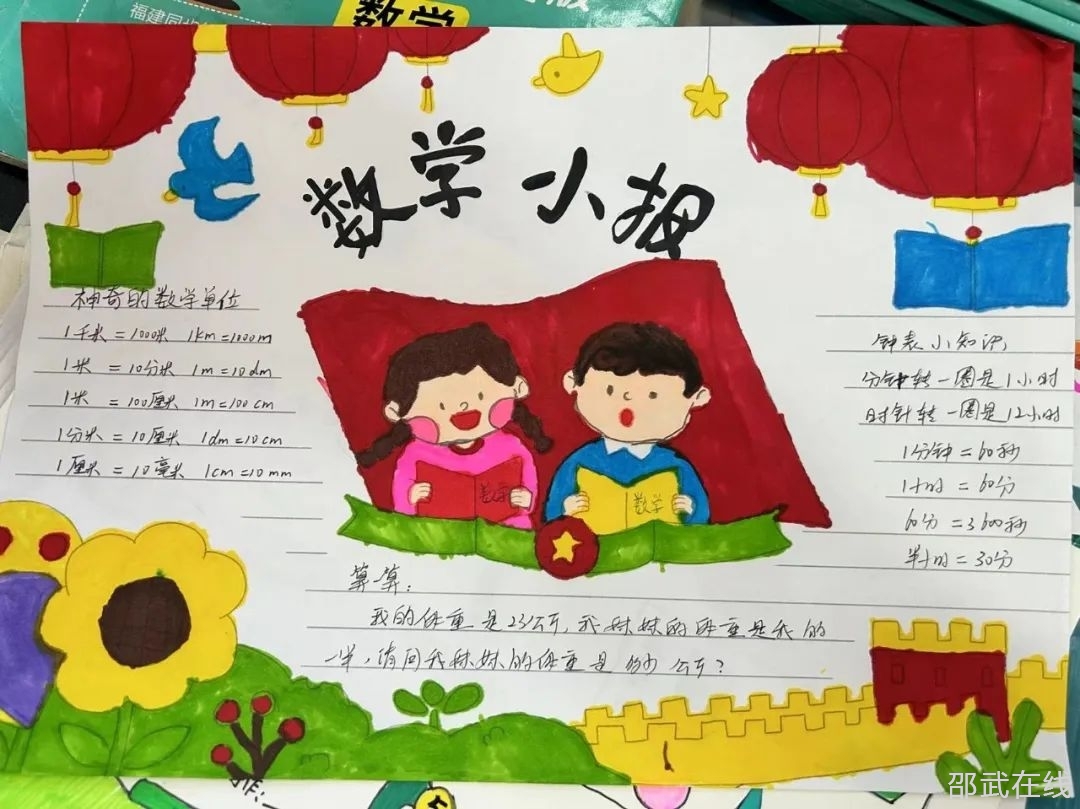 福建同步
数学
数学小报
神奇的数学单位
1千米=1000米 1km=1000m
1米=10分米 1m=10dm
1米=100厘米 1m=100cm
1分米=10厘米 1dm=10cm
1厘米=10毫米 1cm=10mm
钟表小知识
分针转一圈是1小时
时针转一圈是12小时
1分钟=60秒
1小时=60分
60分=3600秒
半小时=30分
数学
数学
算一算:
我的体重是23公斤,我妹妹的体重是我的
一半,请问我妹妹的体重是多少公斤?
邵武在线